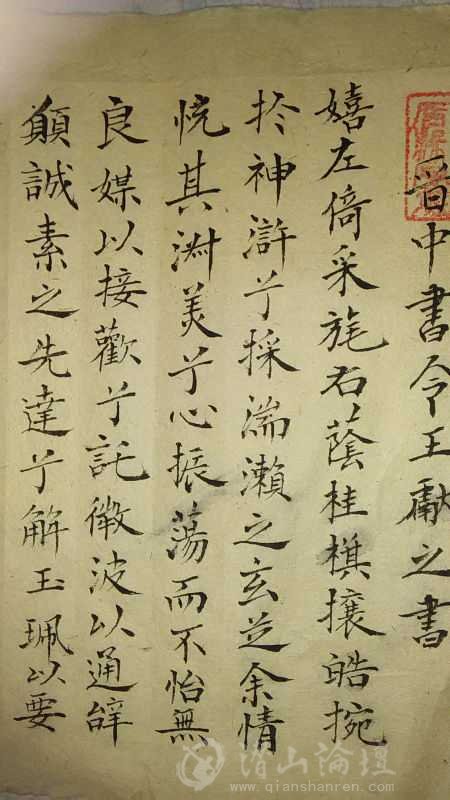 晋中書令王獻之書
嬉左倚采旄右蔭桂棋攘皓捥
扵神滸兮採湍瀨之玄芝余情
恱其淑美兮心振蕩而不怡無
良媒以接歡兮託微波以通辞
願誠素之先達兮解玉珮以要
潜山論壇
www.qianshanren.com